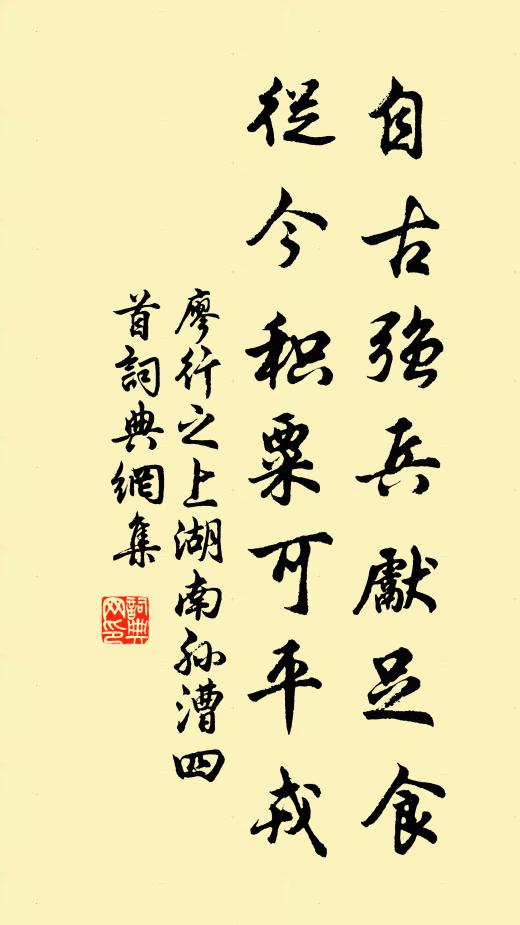 自古強兵獻足食
從今积粟可平戎
廖行之上湖南孙漕四
首詞典網集
詞典
网印